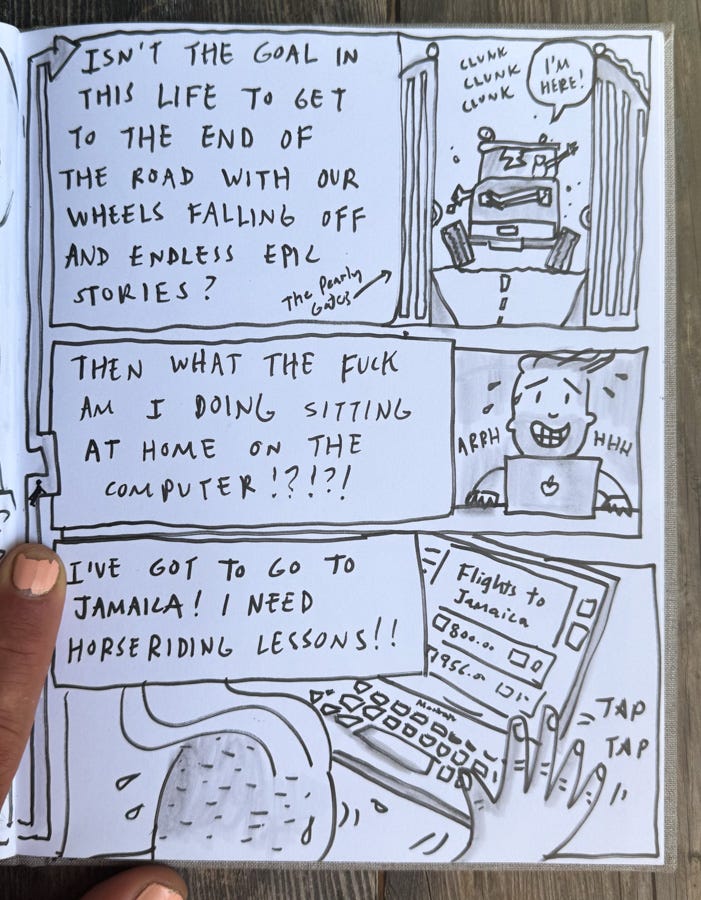 ISN'T THE GOAL IN
THIS LIFE TO GET
TO THE END OF
THE ROAD WITH OUR
WHEELS FALLING OFF
AND ENDLESS EPIC
STORIES?
The Pearly
Gates
CLUNK
CLUNK
CLUNK
I'M
HERE!
THEN WHAT THE FUCK
AM I DOING SITTING
AT HOME ON THE
COMPUTER!?!?!
ARRH
HHH
I'VE GOT TO GO TO
JAMAICA! I NEED
HORSERIDING LESSONS!!
Flights to
Jamaica
800.00
956.0
TAP
TAP